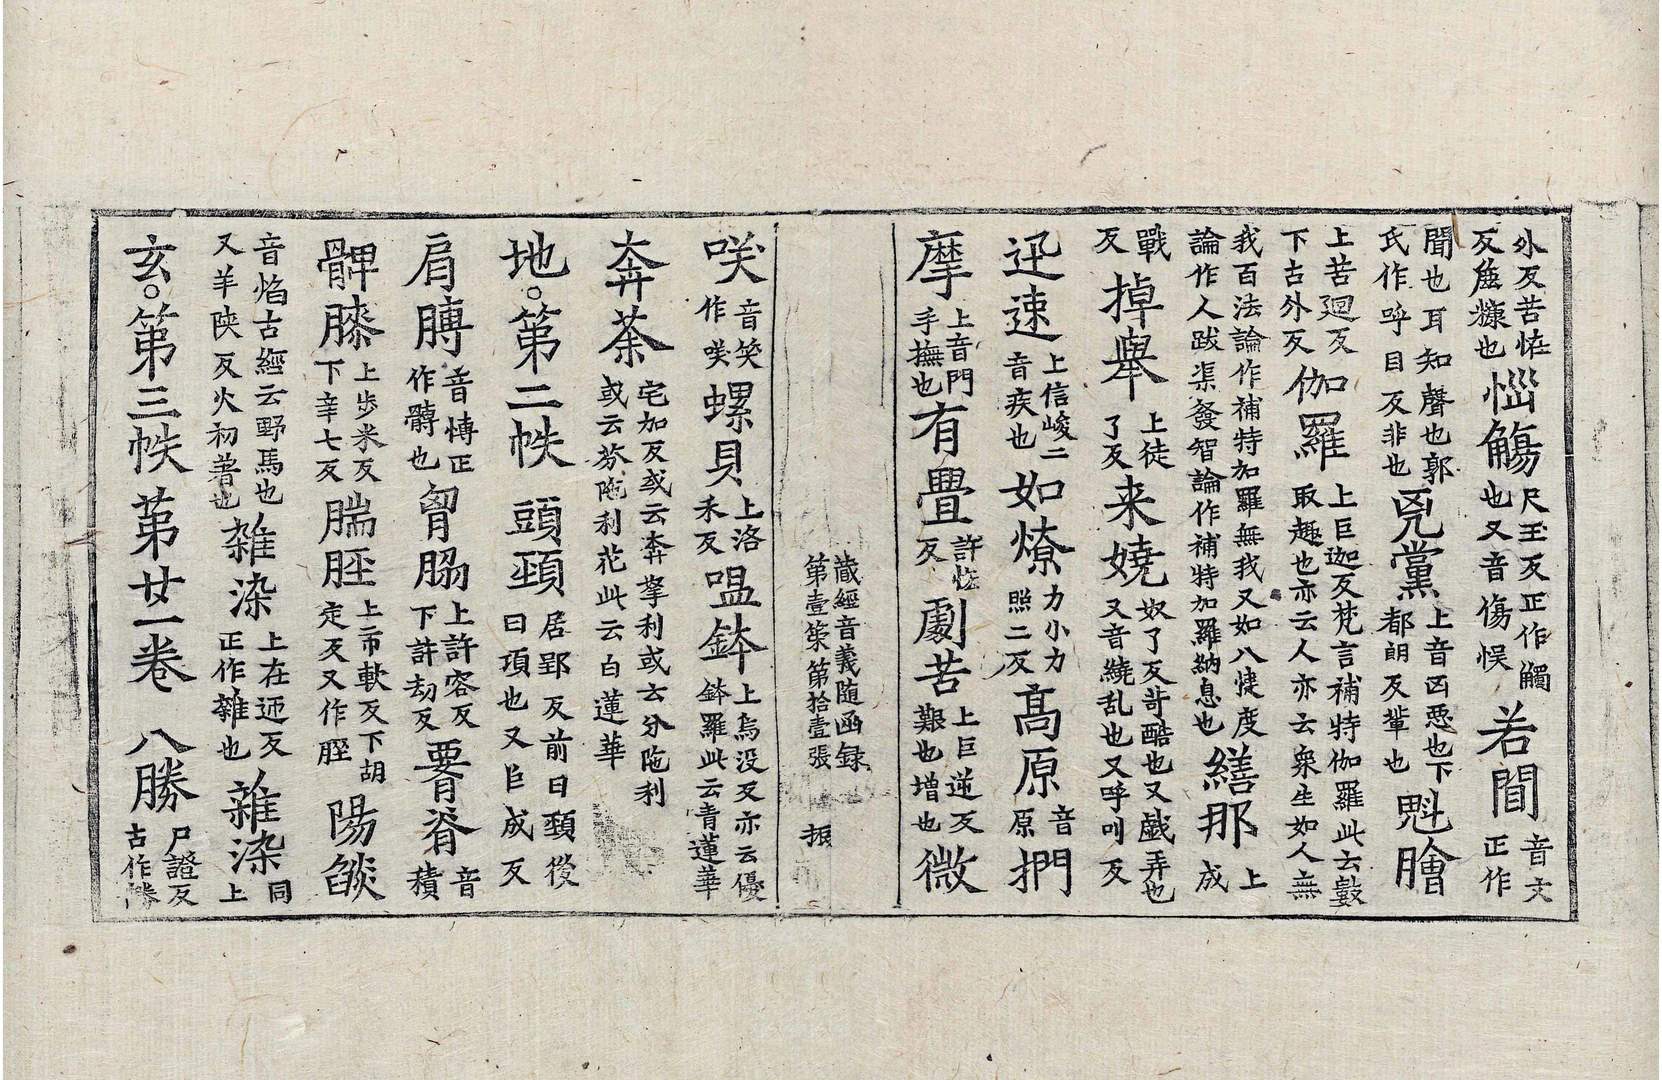 外反苦恠反麁糠也惱觸尺玉反正作觸也又音傷悮若閆音文正作
聞也耳知聲也郭氏作呼目反非也兇黨上音凶悪也下都朗反輩也魁膾
上苦迴反下古外反伽羅上巨迦反梵言補特伽羅此云數取趣也亦云人亦云衆生如人無
我百法論作補特加羅無我又如八揵度論作人跋渠發智論作補特加羅納息也繕那上成
戰反掉舉上徒了反来嬈奴了反苛酷也又戲弄也又音繞乱也又呼叫反
迅速上信峻二音疾也如燎力小力照二反高原音原捫
摩上音門手撫也有舋許恠反劇苦上巨逆反艱也增也微
藏經音義随函録
第壹筞第拾壹張 振
咲音笑作㗛螺貝上洛禾反嗢鉢上烏没反亦云優鉢羅此云青蓮華
奔荼宅加反或云奔拏利或云分陁利或云芬陁利花此云白蓮華
地。第二帙 頭頚居郢反前曰頚後曰項也又臣成反
肩膊音慱正作髆也胷脇上許容反下許劫反脊音積
髀膝上步米反下辛七反腨脛上市軟反下胡定反又作陽燄
音焰古經云野馬也又羊陝反火初著也雜染上在迊反正作雜也雜染同上
玄。第三帙第廿一卷 八勝尸證反古作勝